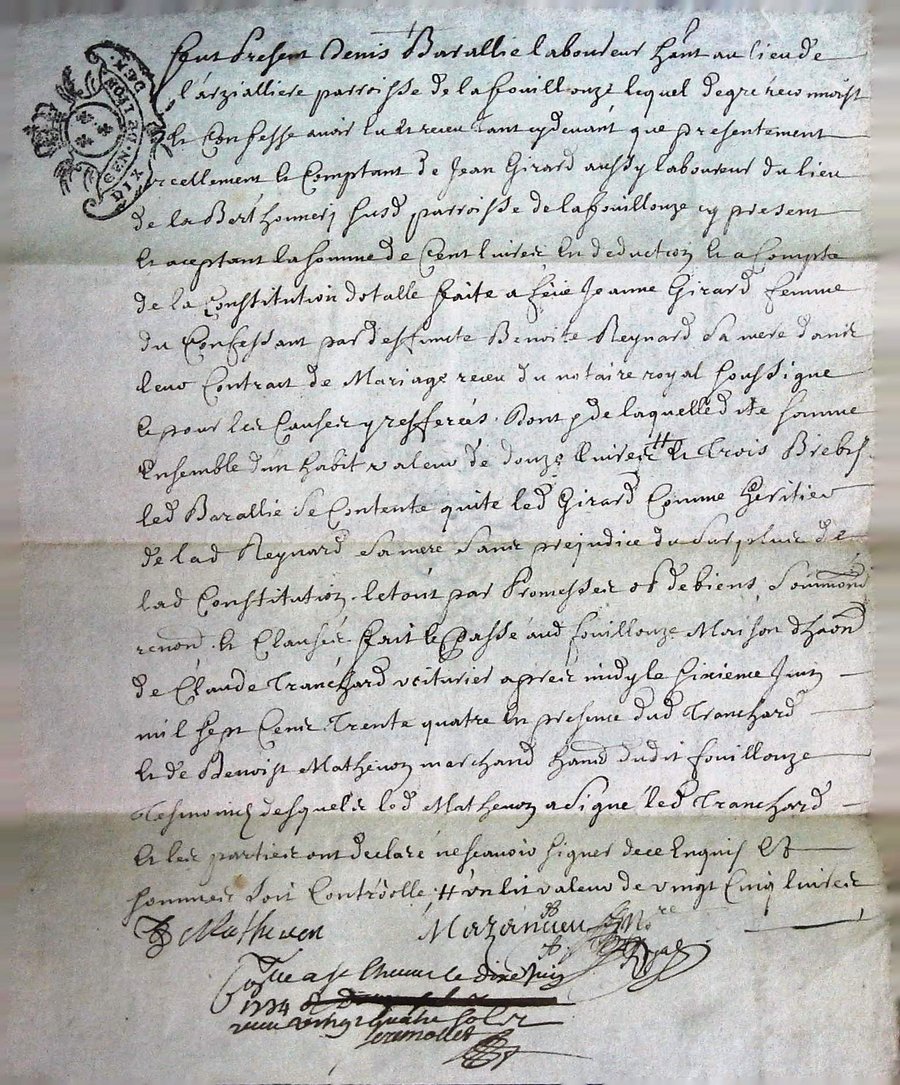 GEN DE LYON
DIX DEN.
fut Present Denis Barallie laboureur hãnt au lieu de
l'arzialliere parroisse de lafouillouze lequel degré reconnoist
et Confesse avoir eu et receu tant cydevant que presentement
reellement et Comptant de Jean Girard aussy laboureur du lieu
de la Berthonnery susd parroisse de lafouillouze cy present
et aceptant la somme de Cent livres en deduction et a Compte
de la Constitution dotalle faite a feüe Jeanne Girard femme
du Confessant par deffuncte Benoite Reynard sa mere dans
leur Contract de Mariage receu du notaire royal soussigne
et pour les Causes y refferées. Dont & de laquelle dite somme
Ensemble d'un habit valeur de douze livres # et Trois Brebis
led Barallie se Contente quite led Girard Comme heritier
de lad Reynard sa mere sans prejudice du surplus de
lad Constitution. le tout par Promesses ob de biens, soûmond
renond. et Clauses. fait et passé aud fouillouze Maison dhaond
de Claude Tranchard voiturier apres midy le sixieme Juin
mil sept Cens Trente quatre en presence dud Tranchard
et de Benoist Mathevon marchand hand dudit fouillouze
Tesmoins desquels led Mathevon a signé led Tranchard
et les parties ont declaré ne scavoir signer de ce Enquis Et
sommés soit Controolle, # un lit valeur de vingt Cinq livres
Mathevon Mazancieu No re
a st Chaumt le dix Juin
1734
receu vingt quatre sols